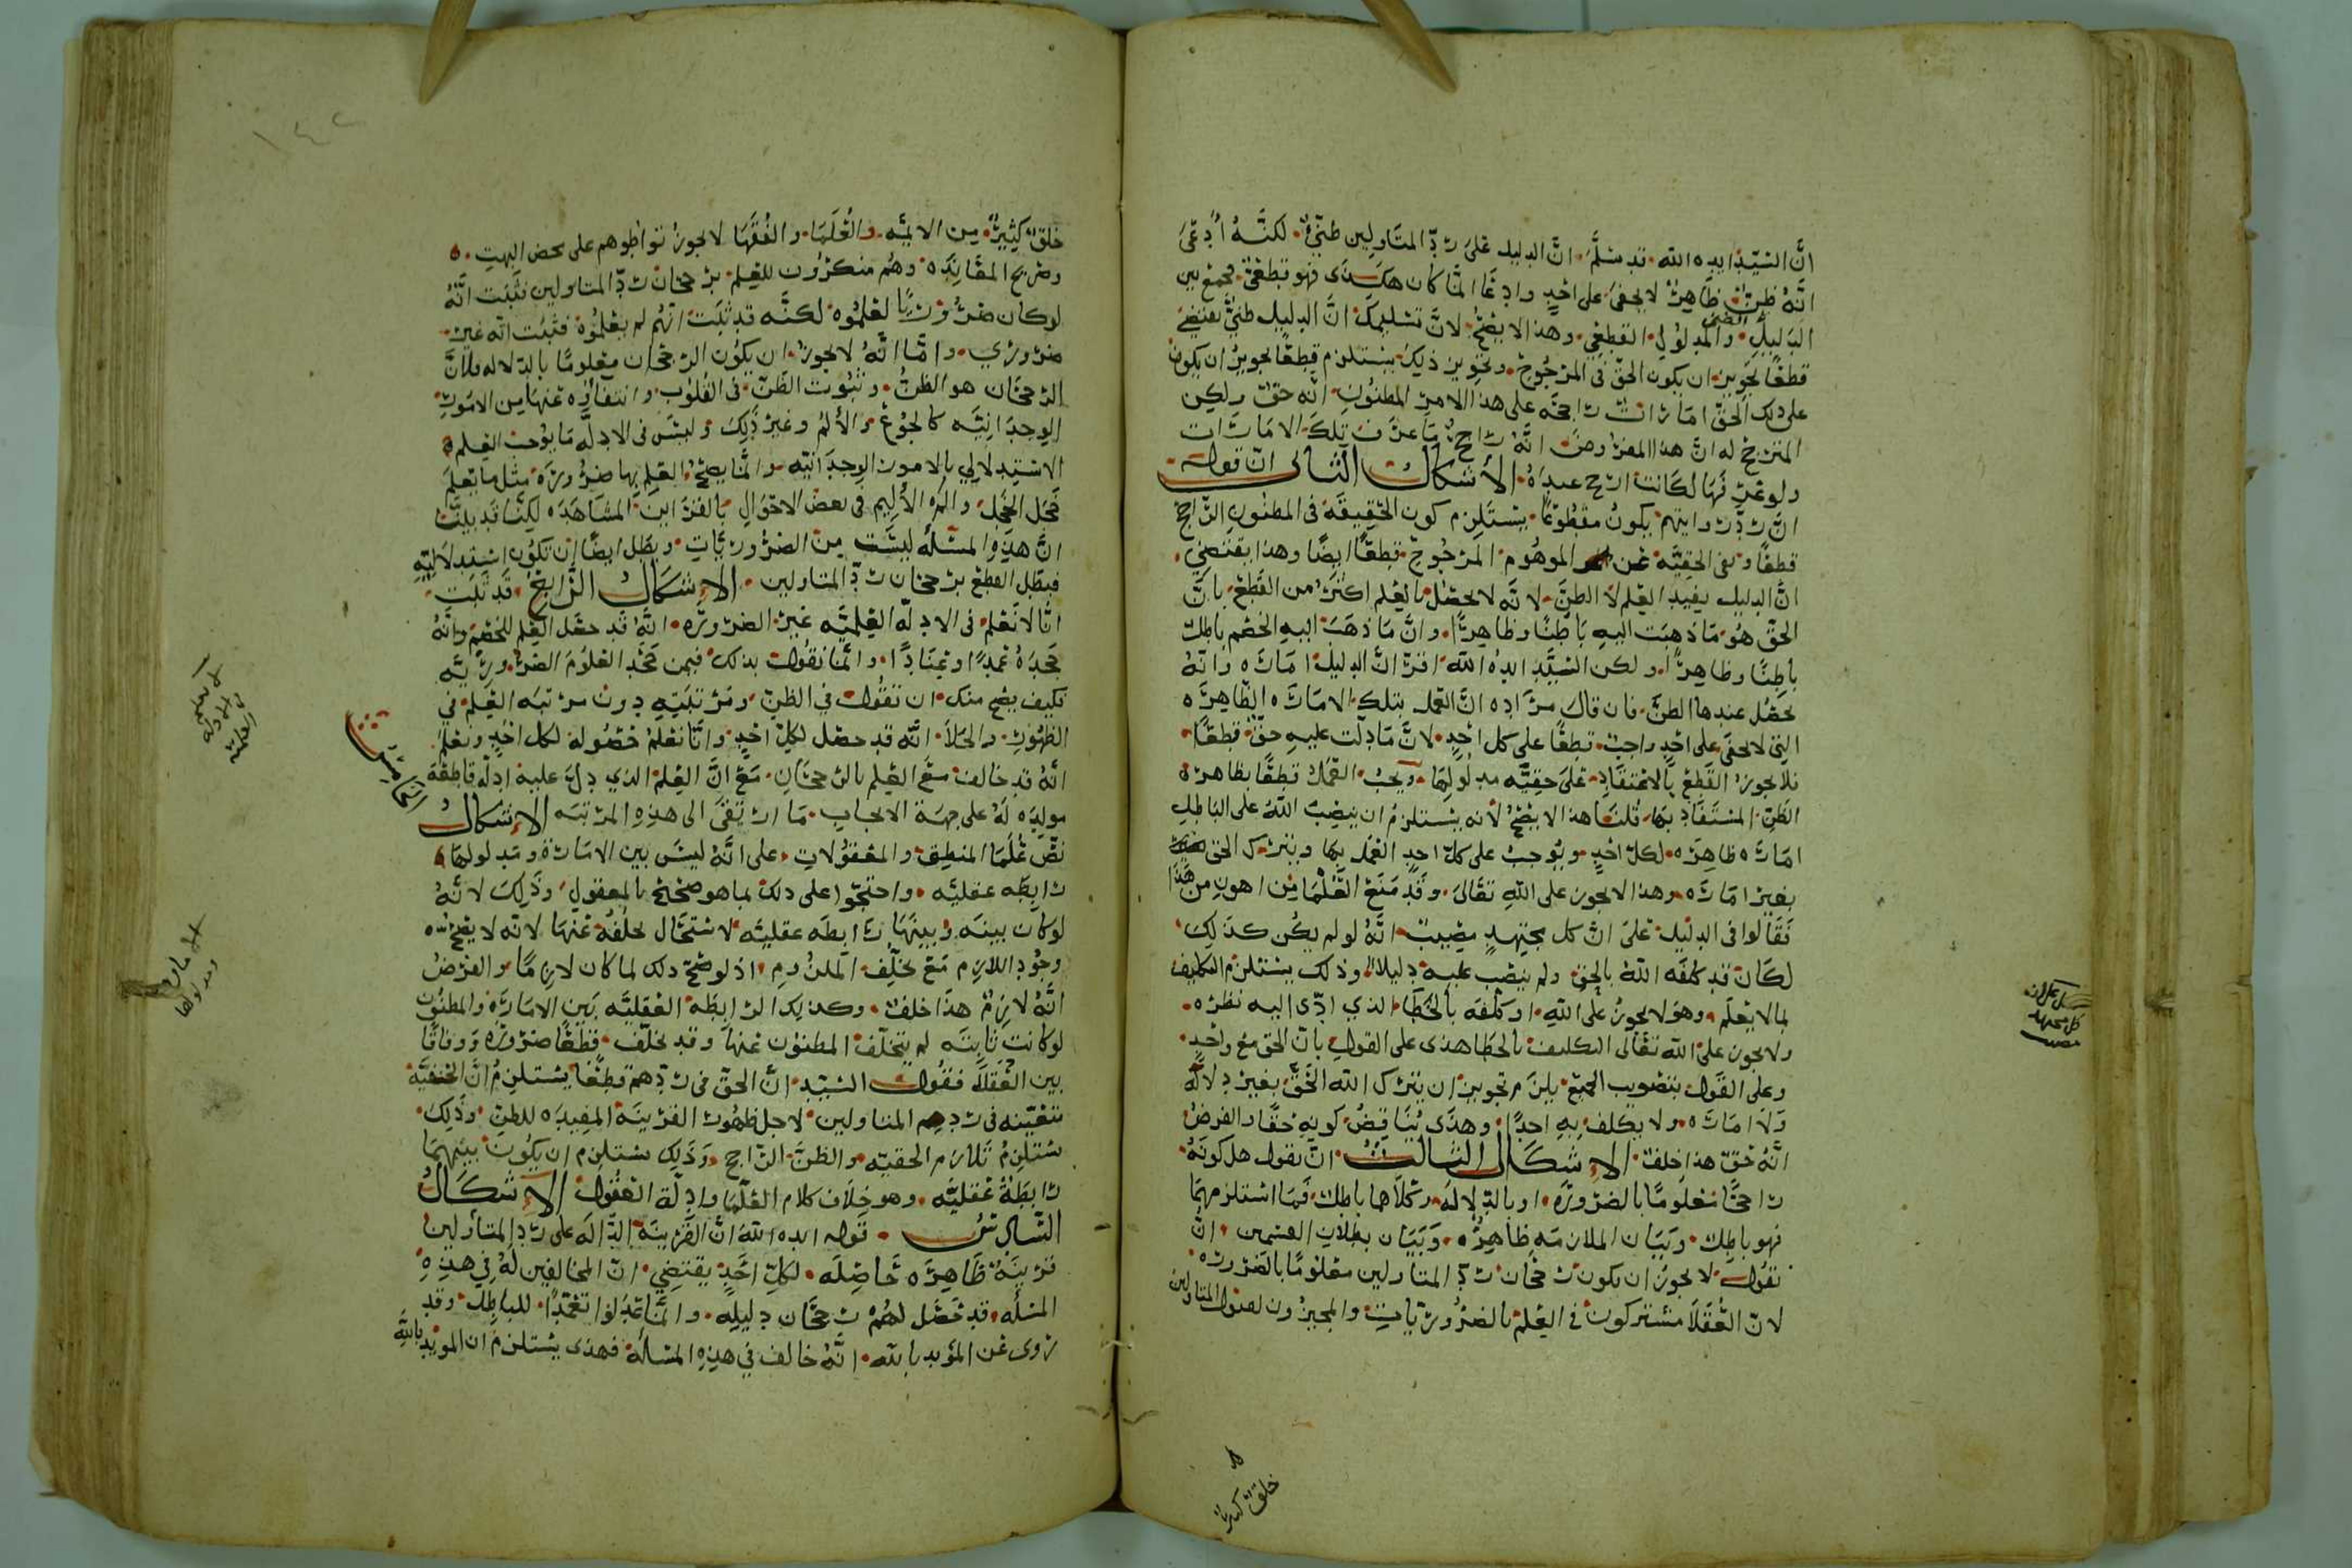 انّ السيّد ايده الله قد سلّم انّ الدليل على ردّ المتاولين ظنّي لكنّه ادعى
انّه ظن ظاهر لا يخفى على احد وادعا انما كان هكذى فهو قطعي فجمع بين
الدليل الظني والمدلول القطعي وهذا لا يصح لانّ تسليمك انّ الدليل ظنيّ يقتضي
قطعًا تجويز ان يكون الحقّ في المرجوح وتجويز ذلك يستلزم قطعًا تجويز ان يكون
على ذلك الحقّ امارات راجحه على هذا الامر المظنون انّه حقّ ولكن
المترجح له انّ هذا المفروض انّه راجح ما عرف تلك الامارات
ولو عرفها لكانت ارجح عنده الاشكال الثاني انّ قوله
انّ ردّ روايتهم يكون مقطوعًا يستلزم كون الحقيقة في المظنون الراجح
قطعًا ونفي الحقيّه عن الموهوم المرجوح قطعًا ايضًا وهذا يقتضي
انّ الدليل يفيد العلم لا الظنّ لانّه لا يحصل بالعلم اكثر من القطع بانّ
الحقّ هو ما ذهبت اليه باطنًا وظاهرًا وانّ ما ذهب اليه الخصم باطل
باطنًا وظاهرًا ولكن السيّد ايده الله اقرّ انّ الدليل اماره وانّه
يحصل عندها الظنّ فان قال مراده انّ العمل بتلك الاماره الظاهره
التي لا تخفى على احد واجب قطعًا على كل احد لانّ ما دلّت عليه حقّ قطعًا
فلا يجوز القطع بالاعتقاد على حقيّه مدلولها ويجب العمل قطعًا بظاهره
الظن المستفاد بها قلنا هذا لا يصح لانه يستلزم ان ينصب الله على الباطل
اماره ظاهره لكل احد ويوجب على كلّ احد العمل بها ويترك الحق
بغير اماره وهذا لا يجوز على الله تعالى وقد منع العلما من اهون من هذا
فقالوا في الدليل على انّ كل مجتهد مصيب انّه لو لم يكن كذلك
لكان قد كلفه الله بالحق ولم ينصب عليه دليلا وذلك يستلزم التكليف
بما لا يعلم وهو لا يجوز على الله او كلّفه بالخطا الذي ادّى اليه نظره
ولا يجوز على الله تعالى التكليف بالخطا هذى على القول بانّ الحق مع واحد
وعلى القول بتصويب الجميع يلزم تجويز ان يترك الله الحقّ بغير دلاله
ولا اماره ولا يكلف به احدًا وهذى يناقض كونه حقًا والفرض
انّه حقّ هذا خلف الاشكال الثالث ان نقول هل كونه
راجحًا معلومًا بالضروره او بالدلاله وكلاهما باطل فما استلزمهما
فهو باطل وبيان الملازمه ظاهره وبيان بطلان القسمين انّ
نقول لا يجوز ان يكون رجحان ردّ المتاولين معلومًا بالضروره
لانّ العقلا مشتركون في العلم بالضروريات والمجيزون لقبول المتاولين
خلق كثير
كل مجتهد
مصيب
١٤٢
خلق كثير من الايمّه والعلما والفقها لا يجوز تواطوهم على محض البهت
وصريح المعانده وهم منكرون للعلم برجحان ردّ المتاولين فثبت انّه
لو كان ضروريًا لعلموه لكنّه قد ثبت انهم لم يعلموه فثبت انّه غير
ضروري وامّا انّه لا يجوز ان يكون الرجحان معلومًا بالدلاله فلانّ
الرجحان هو الظنّ وثبوت الظنّ في القلوب وانتفاؤه عنها من الامور
الوجدانيّه كالجوع والالم وغير ذلك وليس في الادلّه ما يوجب العلم
الاستدلالي بالامور الوجدانيّه وانّما يصحّ العلم بها ضروره مثل ما يعلم
خجل الخجل والم الاليم في بعض الاحوال بالقراين المشاهده لكنّا قد بيّنّا
انّ هذه المسئله ليست من الضروريّات وبطل ايضًا ان تكون استدلاليّه
فبطل القطع برجحان ردّ المتاولين الاشكال الرابع قد ثبت
انّا لا نعلم في الادلّه العلميّه غير الضروره انّه قد حصل العلم للخصم وانّه
جحده عمدًا وعنادًا وانّما نقول بذلك فيمن جحد العلوم الضروريّه
فكيف يصح منك ان تقول في الظنّ ومرتبته دون مرتبه العلم في
الظهور والجلا انّه قد حصل لكل احد وانّا نعلم حصوله لكل احد ونعلم
انّه قد خالف مع العلم بالرجحان مع انّ العلم الذي دلّ عليه ادلّه قاطعة
مولده له على جهة الايجاب ما ارتقى الى هذه المرتبه الاشكال
الخامس
نصّ علما المنطق والمعقولات على انّه ليس بين الاماره ومدلولها
رابطه عقليّه واحتجّوا على ذلك بما هو صحيح بالمعقول وذلك لانّه
لو كان بينه وبينها رابطه عقليّه لاستحال تخلّفه عنها لانّه لا يصح
وجود اللازم مع تخلّف الملزوم اذ لو صحّ ذلك لما كان لازمًا والفرض
انّه لازم هذا خلف وكذلك الرابطة العقليّه بين الاماره والمظنون
لو كانت ثابته لم يتخلّف المظنون عنها وقد تخلّف قطعًا ضروره ووفاقًا
بين العقلا فقول السيّد انّ الحقّ في ردّهم قطعًا يستلزم انّ الحقيّة
متعيّنه في رد المتاولين لاجل ظهور القرينة المفيده للظن وذلك
يستلزم تلازم الحقيّه والظنّ الراجح وذلك يستلزم ان يكون بينهما
رابطة عقليّه وهو خلاف كلام العلما وادلّة العقول الاشكال
السادس قوله ايده الله انّ القرينة الدّاله على ردّ المتاولين
قرينة ظاهره حاصله لكلّ احد يقتضي انّ المخالفين له في هذه
المسله قد حصل لهم رجحان دليله وانّما عدلوا تعمّدًا للباطل وقد
روى عن المؤيد بالله انّه خالف في هذه المسألة فهذى يستلزم ان الموئد بالله